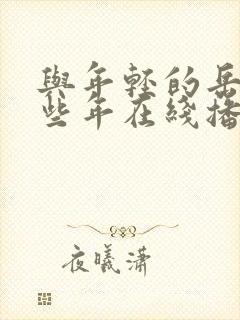 與年輕的岳
些年在綫播
夜曦瀟